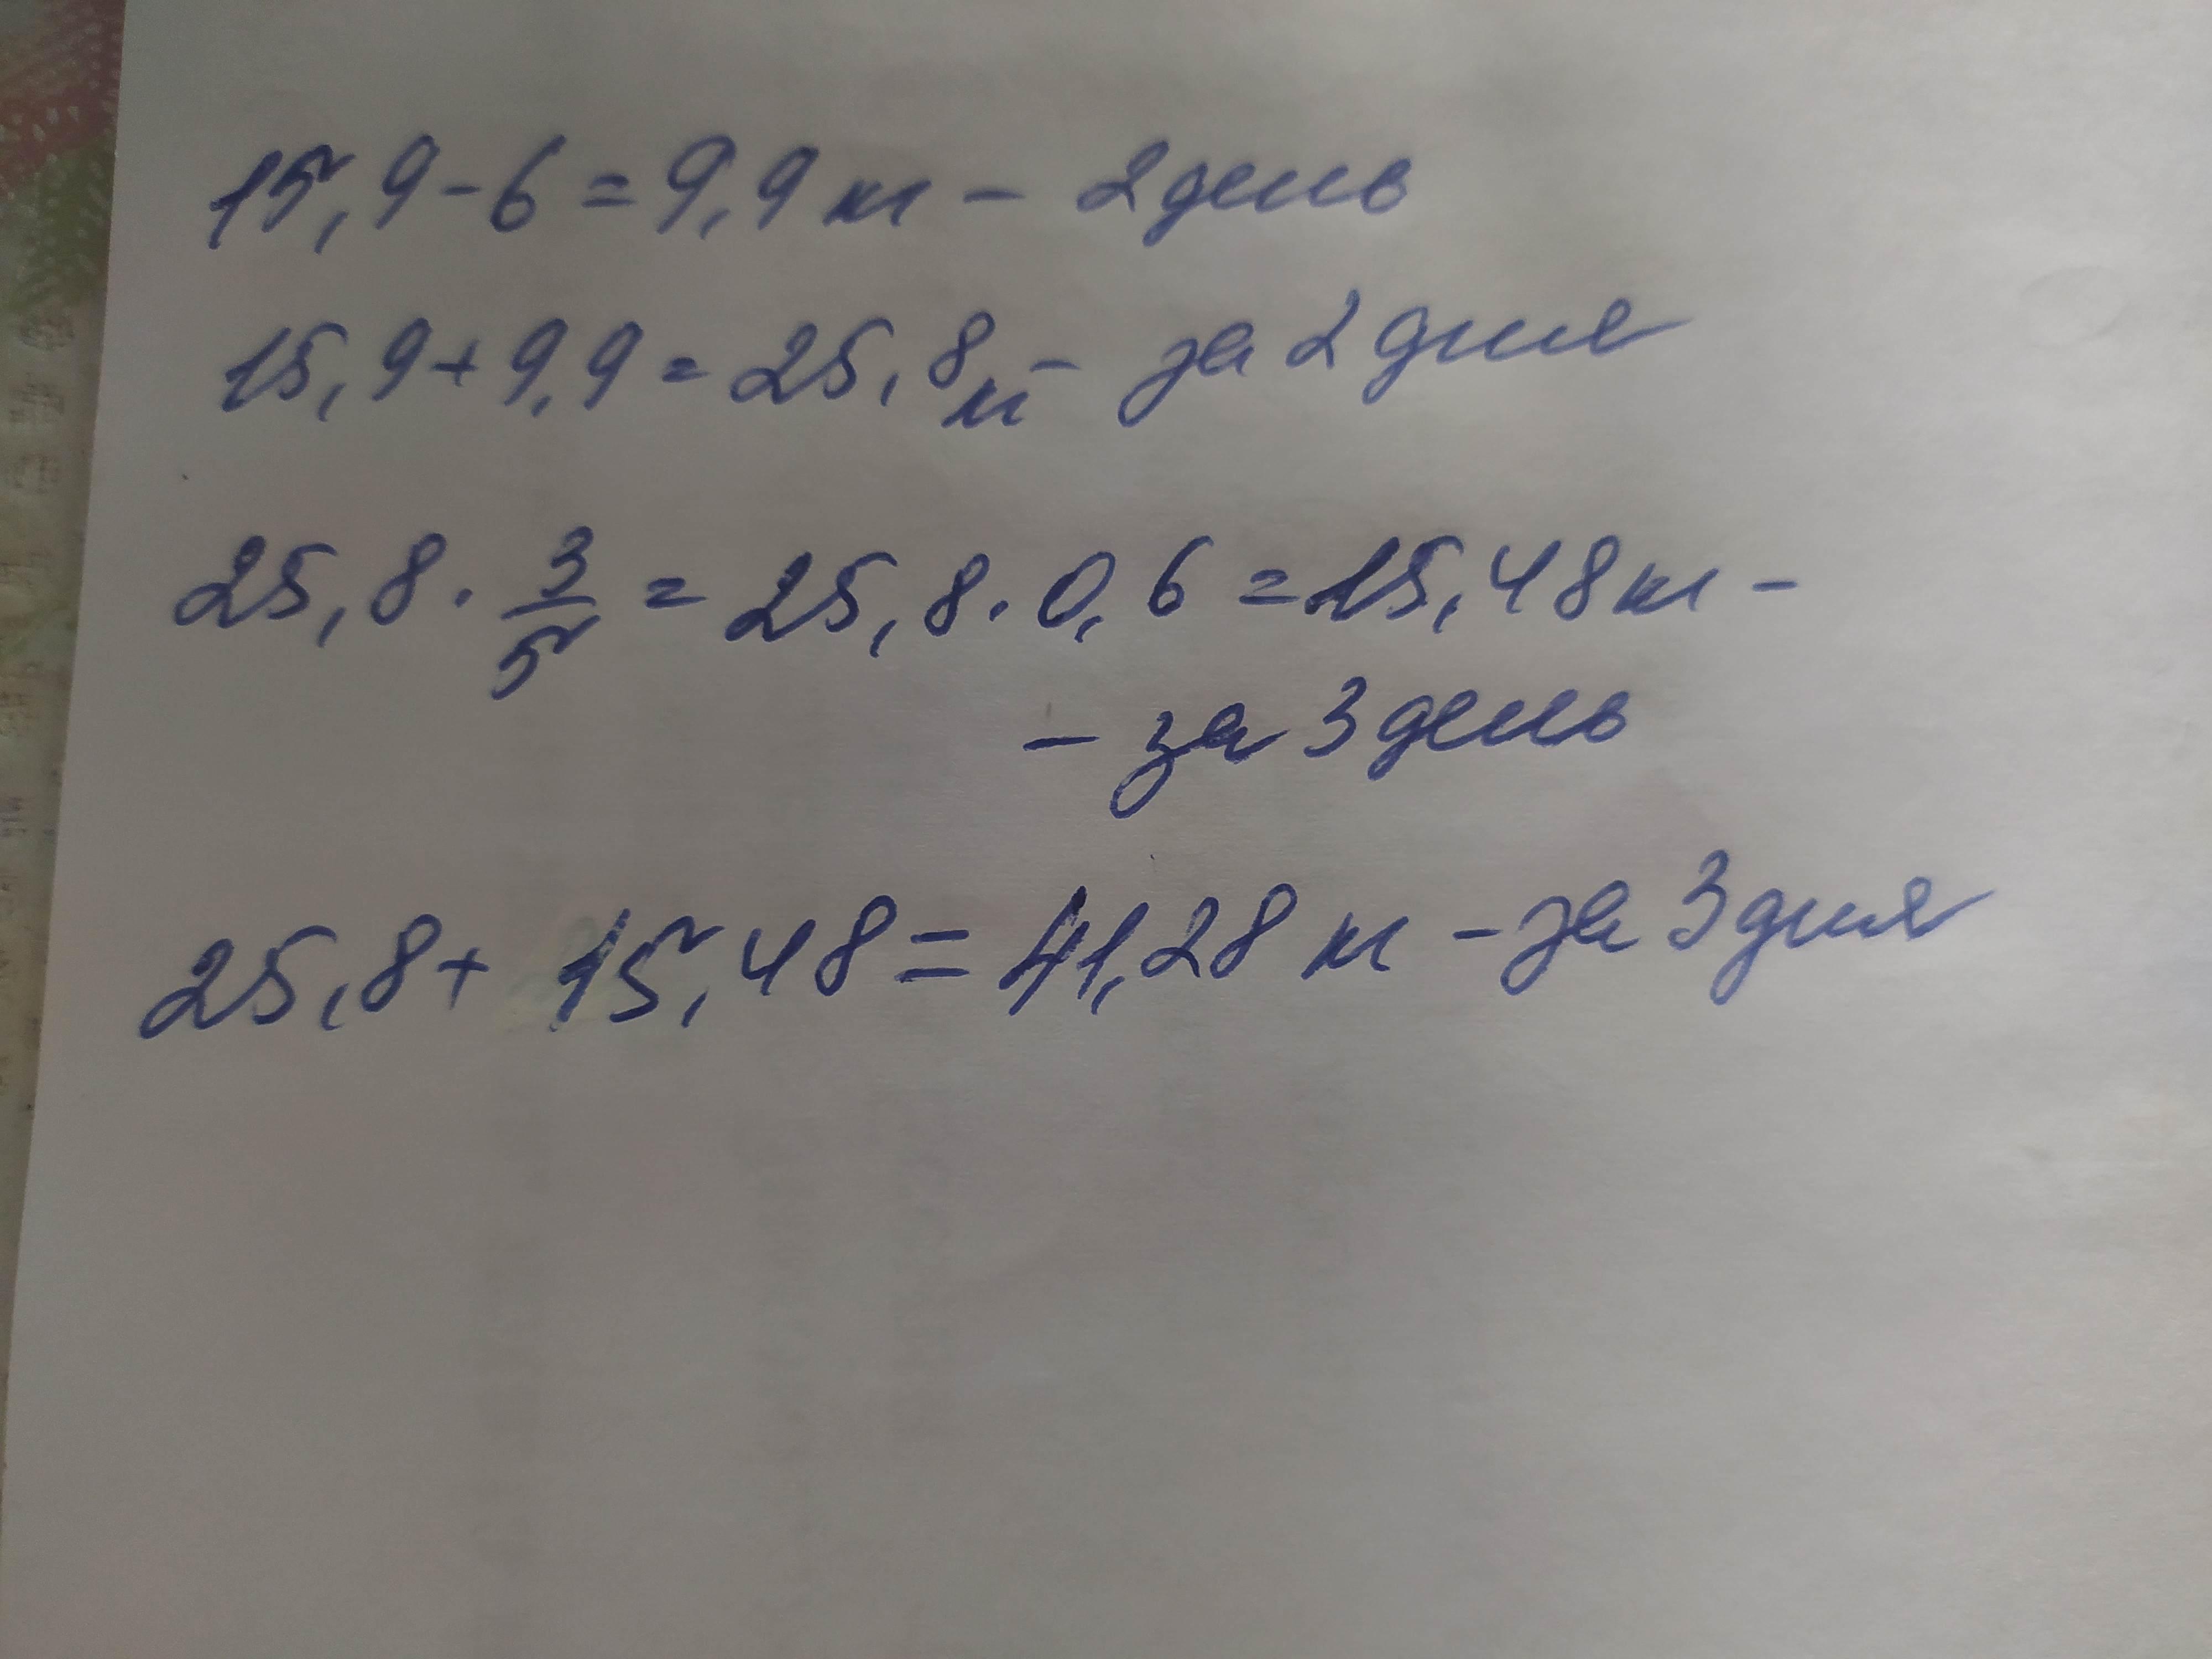 15,9-6=9,9м - 2 день
15,9+9,9=25,8м - за 2 дня
25,8·3/5=25,8·0,6=15,48м -
- за 3 день
25,8+15,48=41,28 м - за 3 дня